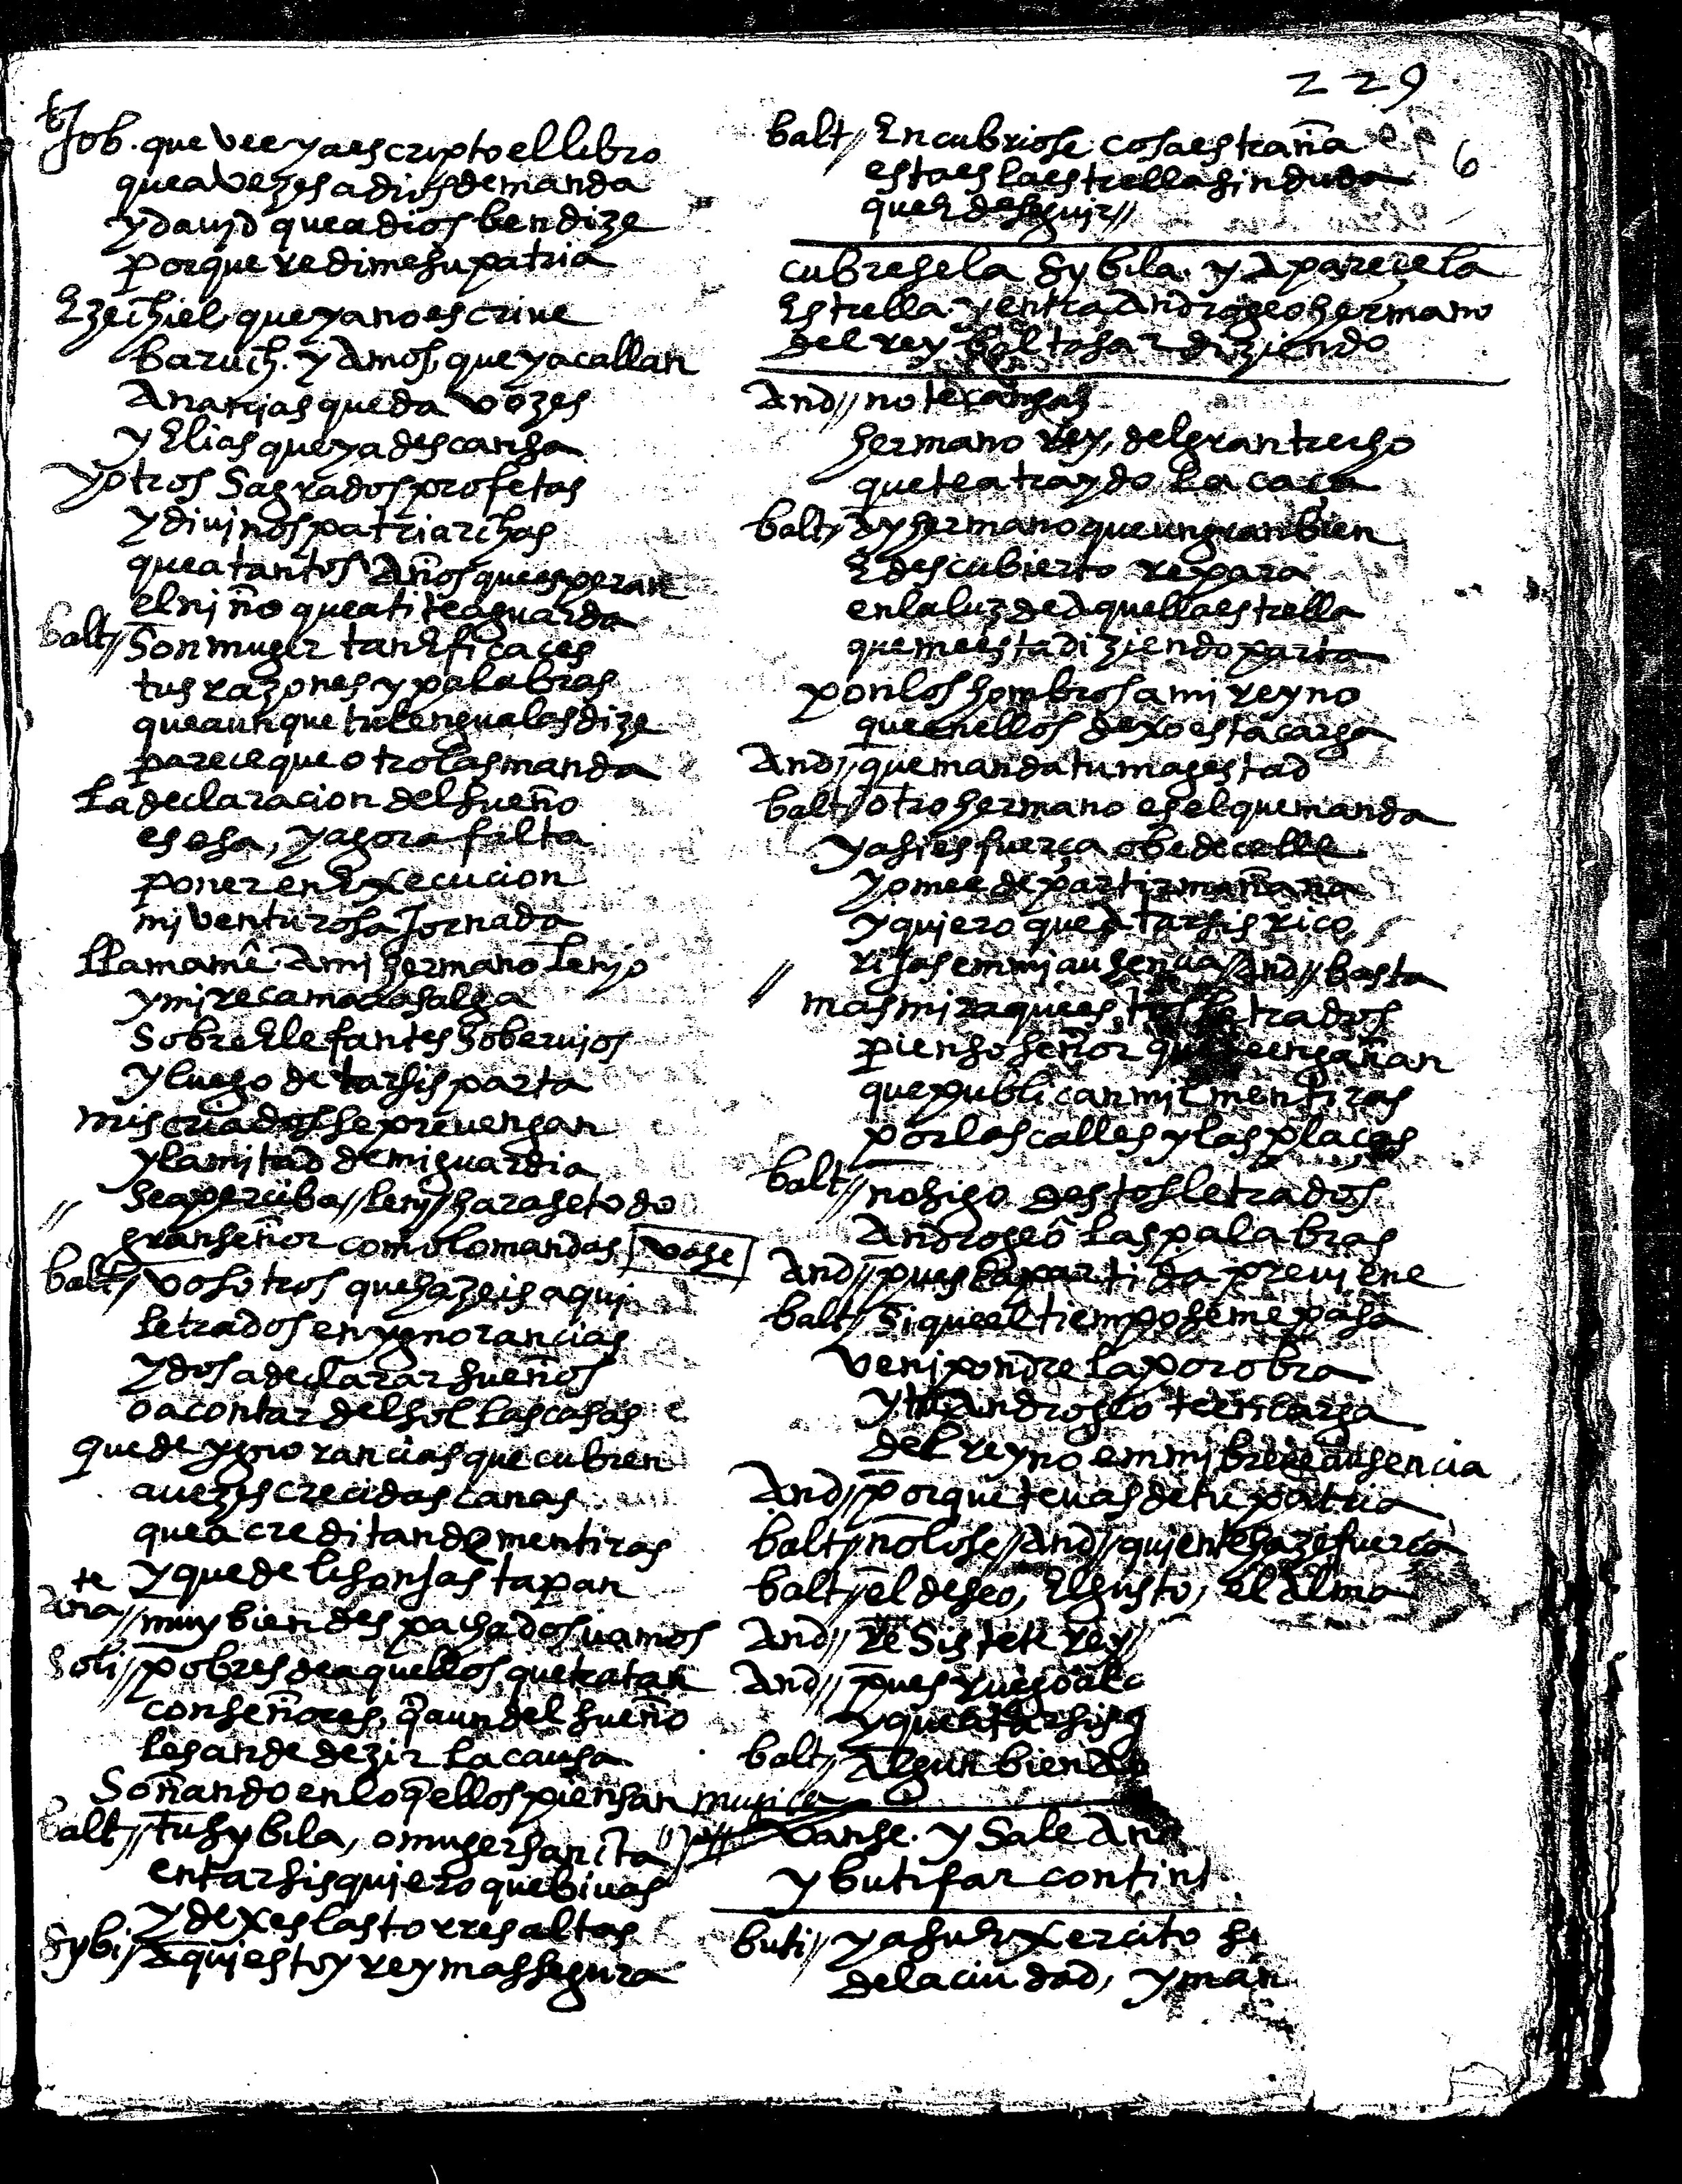 229
6
Job. que vee ya escripto el libro
que a vezes a dios demanda
y dauid que a dios bendize
porque redime su patria
Ezechiel que ya no escriue
baruch. y Amos, que ya callan
Ananias que da vozes
y Elias que ya descansa
y otros Sagrados profetas
y diuinos patriarchas
que a tantos Años que esperan
el niño que a ti te aguarda
balt// Son muger tan Eficaces
tus razones y palabras
que aunque tu lengua las dize
parece que otro las manda
La declaracion del sueño
es esa, y agora falta
poner en Execucion
mi venturosa Jornada
LLamamê A mi hermano Lenio
y mi recamara salga
Sobre Elefantes Soberuios
y luego de tarsis parta
mis criados se preuengan
y la mitad de mi guardia
se aperciba// leni// harase todo
gran señor como lo mandas vase
balt// vosotros que hazeis aqui
letrados en ygnorancias
ydos a declarar sueños
o a contar del sol las casas
que de ygnorancias que cubren
a uezes crecidas canas
que acreditan de mentiras
y que de lisonjas tapan
Ana// muy bien despachados uamos
Soli// pobres de aquellos que tratan
con señores, q̃ aun del sueño
les an de dezir la causa
Soñando en lo q̃ ellos piensan
balt// tu sybila, o muger santa
en tarsis quiero que biuas
y dexes las torres altas
Sybi// Aqui estoy rey mas segura
balt// Encubriose cosa estraña
esta es la estrella sin duda
que E de seguir//
cubrese la Sybila. y Aparece la
Estrella. y entra Androgeo hermano
del rey baltasar diziendo
And// no te cansas
hermano Rey, del gran trecho
que te a traydo la caça
balt// Ay hermano que un gran bien
E descubierto repara
en la luz de Aquella estrella
que me esta diziendo parta
pon los hombros a mi reyno
que en ellos dexo esta carga
And// que manda tu magestad
balt// otro hermano es el que manda
y asi es fuerça obedecelle
yo me e de partir mañana
y quiero que A tarsis rico
rijas em mi ausencia// And// basta
// mas mira que estos letrados
pienso señor que te engañan
que publican mil mentiras
por las calles y las plaças
balt// no sigo destos letrados
Androgeô las palabras
And// pues la partida preuiene
balt// Si que el tiempo se me pasa
ven i pondrela por obra
y tu Androgeo te encarga
del reyno em mi breue ausencia
And// porque te uas de tu patria
balt// no lo se// And// quien te haze fuerça
balt// el deseo, El gusto, el alma
And// ReSistete rey//
And// pues ruego al c
y que a tarsis g
balt// Algun bien de
musica
vanse. y Sale And
y butifar contin
buti// ya su Exercito se
de la ciudad, y man